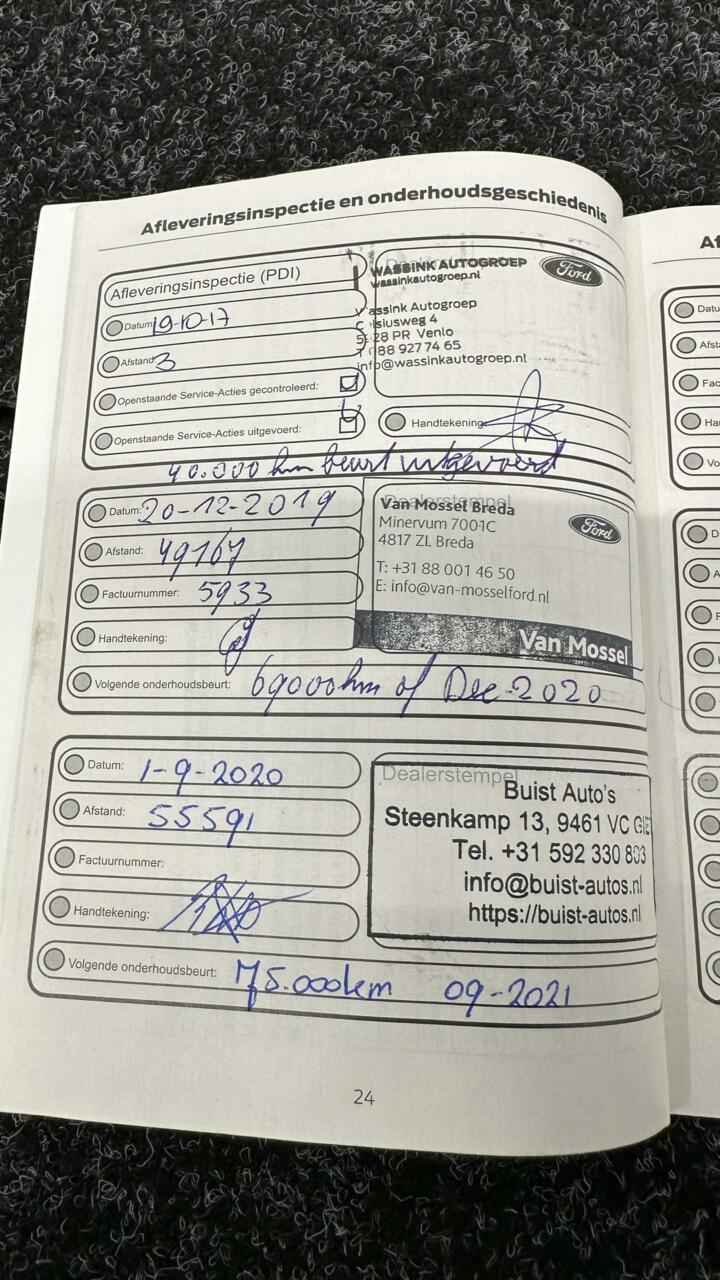 Afleveringsinspectie en onderhoudsgeschiedenis
Afleveringsinspectie (PDI)
Datum: 19-10-17
Afstand: 3
Openstaande Service-Acties gecontroleerd:
Openstaande Service-Acties uitgevoerd:
WASSINK AUTOGROEP
wassinkautogroep.nl
Ford
Wassink Autogroep
PR Venlo
88 927 74 65
info@wassinkautogroep.nl
Handtekening:
40.000 km beurt uitgevoerd
Datum: 20-12-2019
Afstand: 49167
Factuurnummer: 5933
Handtekening:
Volgende onderhoudsbeurt: 69000km of Dec-2020
Dealerstempel
Van Mossel Breda
Minervum 7001C
4817 ZL Breda
Ford
T: +31 88 001 46 50
E: info@van-mosselford.nl
Van Mossel
Datum: 1-9-2020
Afstand: 55591
Factuurnummer:
Handtekening:
Volgende onderhoudsbeurt: 75.000km 09-2021
Dealerstempel
Buist Auto's
Steenkamp 13, 9461 VC GIE
Tel. +31 592 330 803
info@buist-autos.nl
https://buist-autos.nl
24
Af
Datu
Afsta
Fac
Ha
Vo
D
A
F